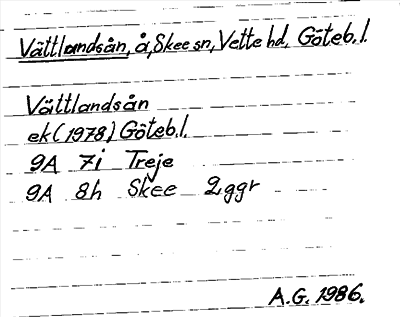 Vättlandsån, å, Skee sn, Vette hd, Göteb. l.
Vättlandsån
ek (1978) Göteb. l.
9A 7i Treje
9A 8h Skee 2 ggr
A.G. 1986.